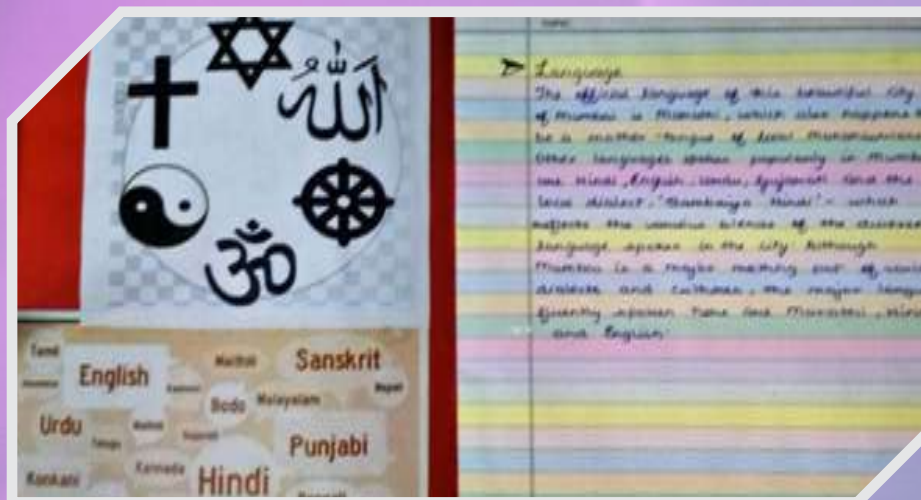 الله
Language
The official language of this beautiful city
of Mumbai is Marathi, which also happens
be a mother tongue of local Maharashtrians
Other languages spoken popularly in
are Hindi, English, Urdu, Gujarati and the
local dialect, 'Bambaiya Hindi' - which
reflects the various blends of the
language spoken in the city Although
Mumbai is a major melting pot of
dialects and cultures, the major
spoken here are Marathi,
and English
ॐ
Tamil
English
Maithili
Sanskrit
Nepali
Bodo
Malayalam
Urdu
Telugu
Punjabi
Konkani
Kannada
Hindi